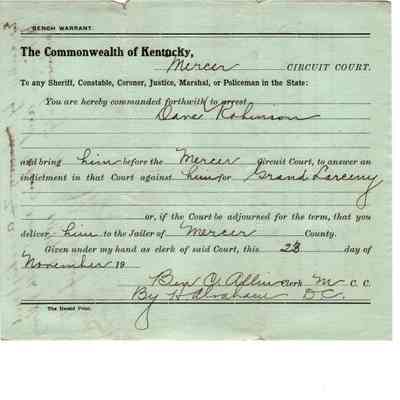 BENCH WARRANT.
The Commonwealth of Kentucky,
Mercer CIRCUIT COURT.
To any Sheriff, Constable, Coroner, Justice, Marshal, or Policeman in the State:
You are hereby commanded forthwith to arrest
Dave Robinson
and bring him before the Mercer Circuit Court, to answer an
indictment in that Court against him for Grand Larceny
or, if the Court be adjourned for the term, that you
deliver him to the Jailer of Mercer County.
Given under my hand as clerk of said Court, this 28 day of
November 19
Ben C. Allin Clerk M C. C.
By D. C.
The Herald Print.